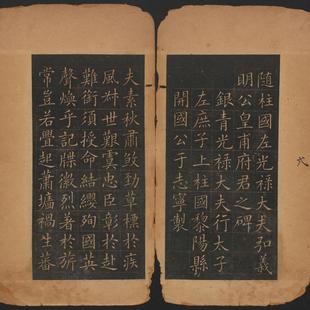 隨柱國左光祿大夫弘義
明公皇甫府君之碑
銀青光祿大夫行太子
左庶子上柱國黎陽縣
開國公于志寧製
夫素秋肅煞勁草標於疾
風叔世艱虞忠臣彰於赴
難銜須授命結纓殉國英
聲煥乎記牒徽烈著於旂
常豈若亹起蕭墻禍生蕃